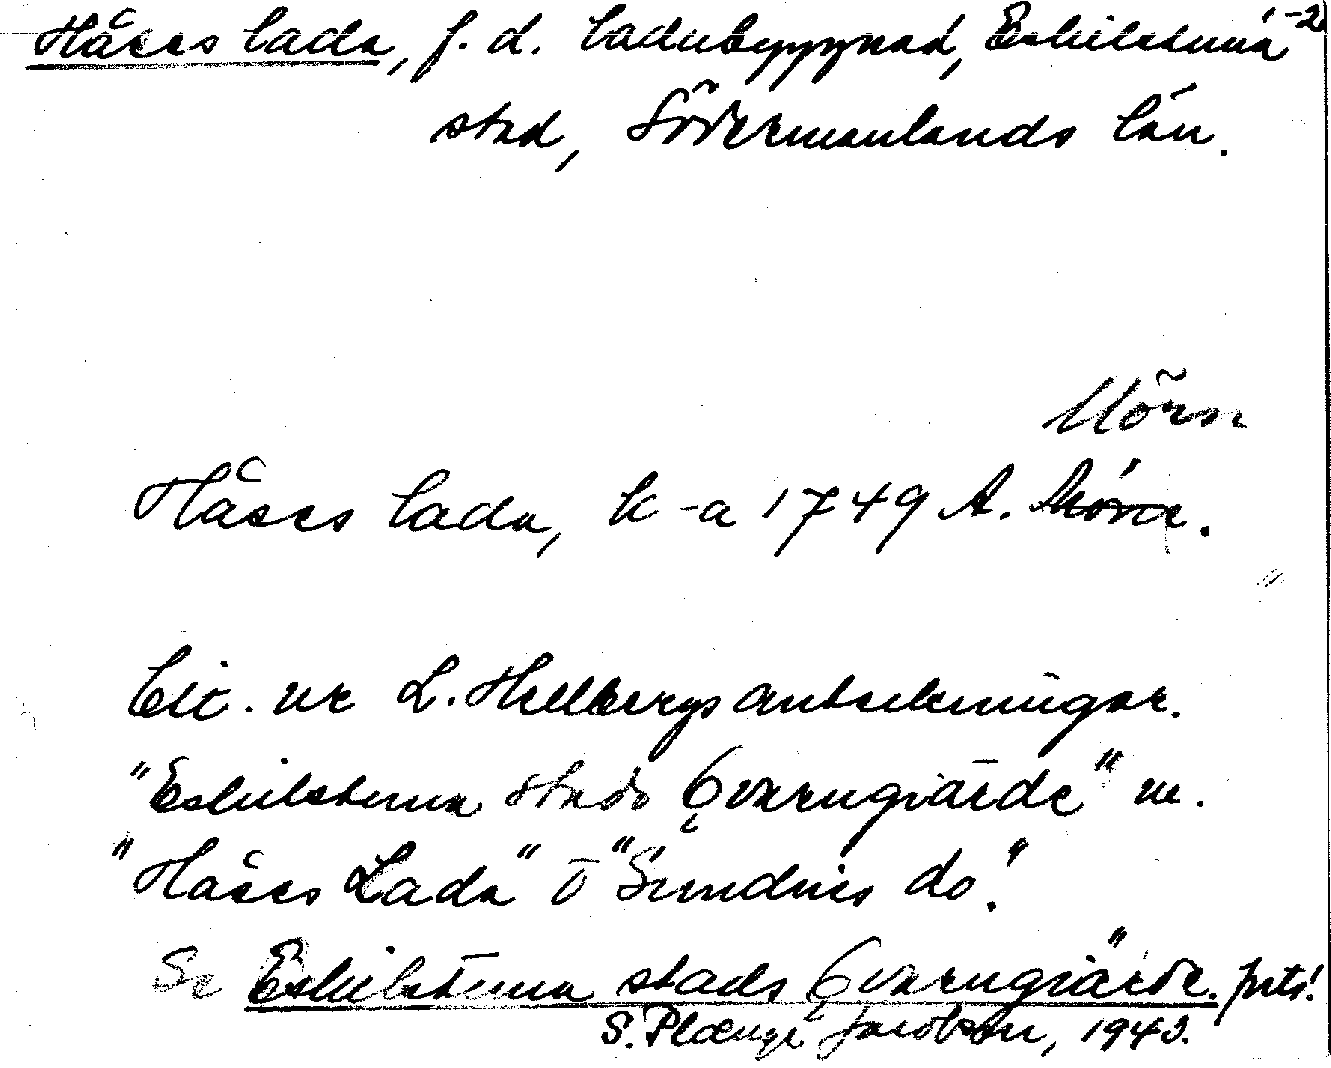 Håses lada, f. d. ladubyggnad, Eskilstuna -2
stad, Södermanlands län.
Mörn
Håses lada, k-a 1749 A. Mörn.
Cit. ur L. Hellbergs anteckningar.
"Eskilstuna stads Qvarngiärde" m.
"Håses Lada" o "Sundnis do".
Se Eskilstuna stads Qvarngiärde".
S. Jacobson, 1943.